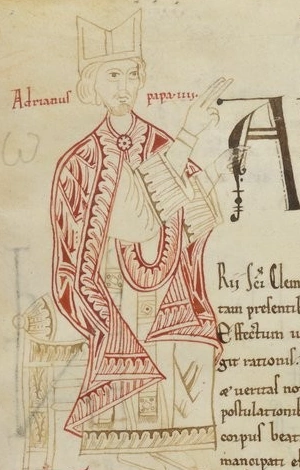 Adrianus papa·iiii·
A
Rij sc̄i Clem
tam presentib
Effectum u
git rationis.
æ veritas no
postulationib
corpus beat
mancipati et